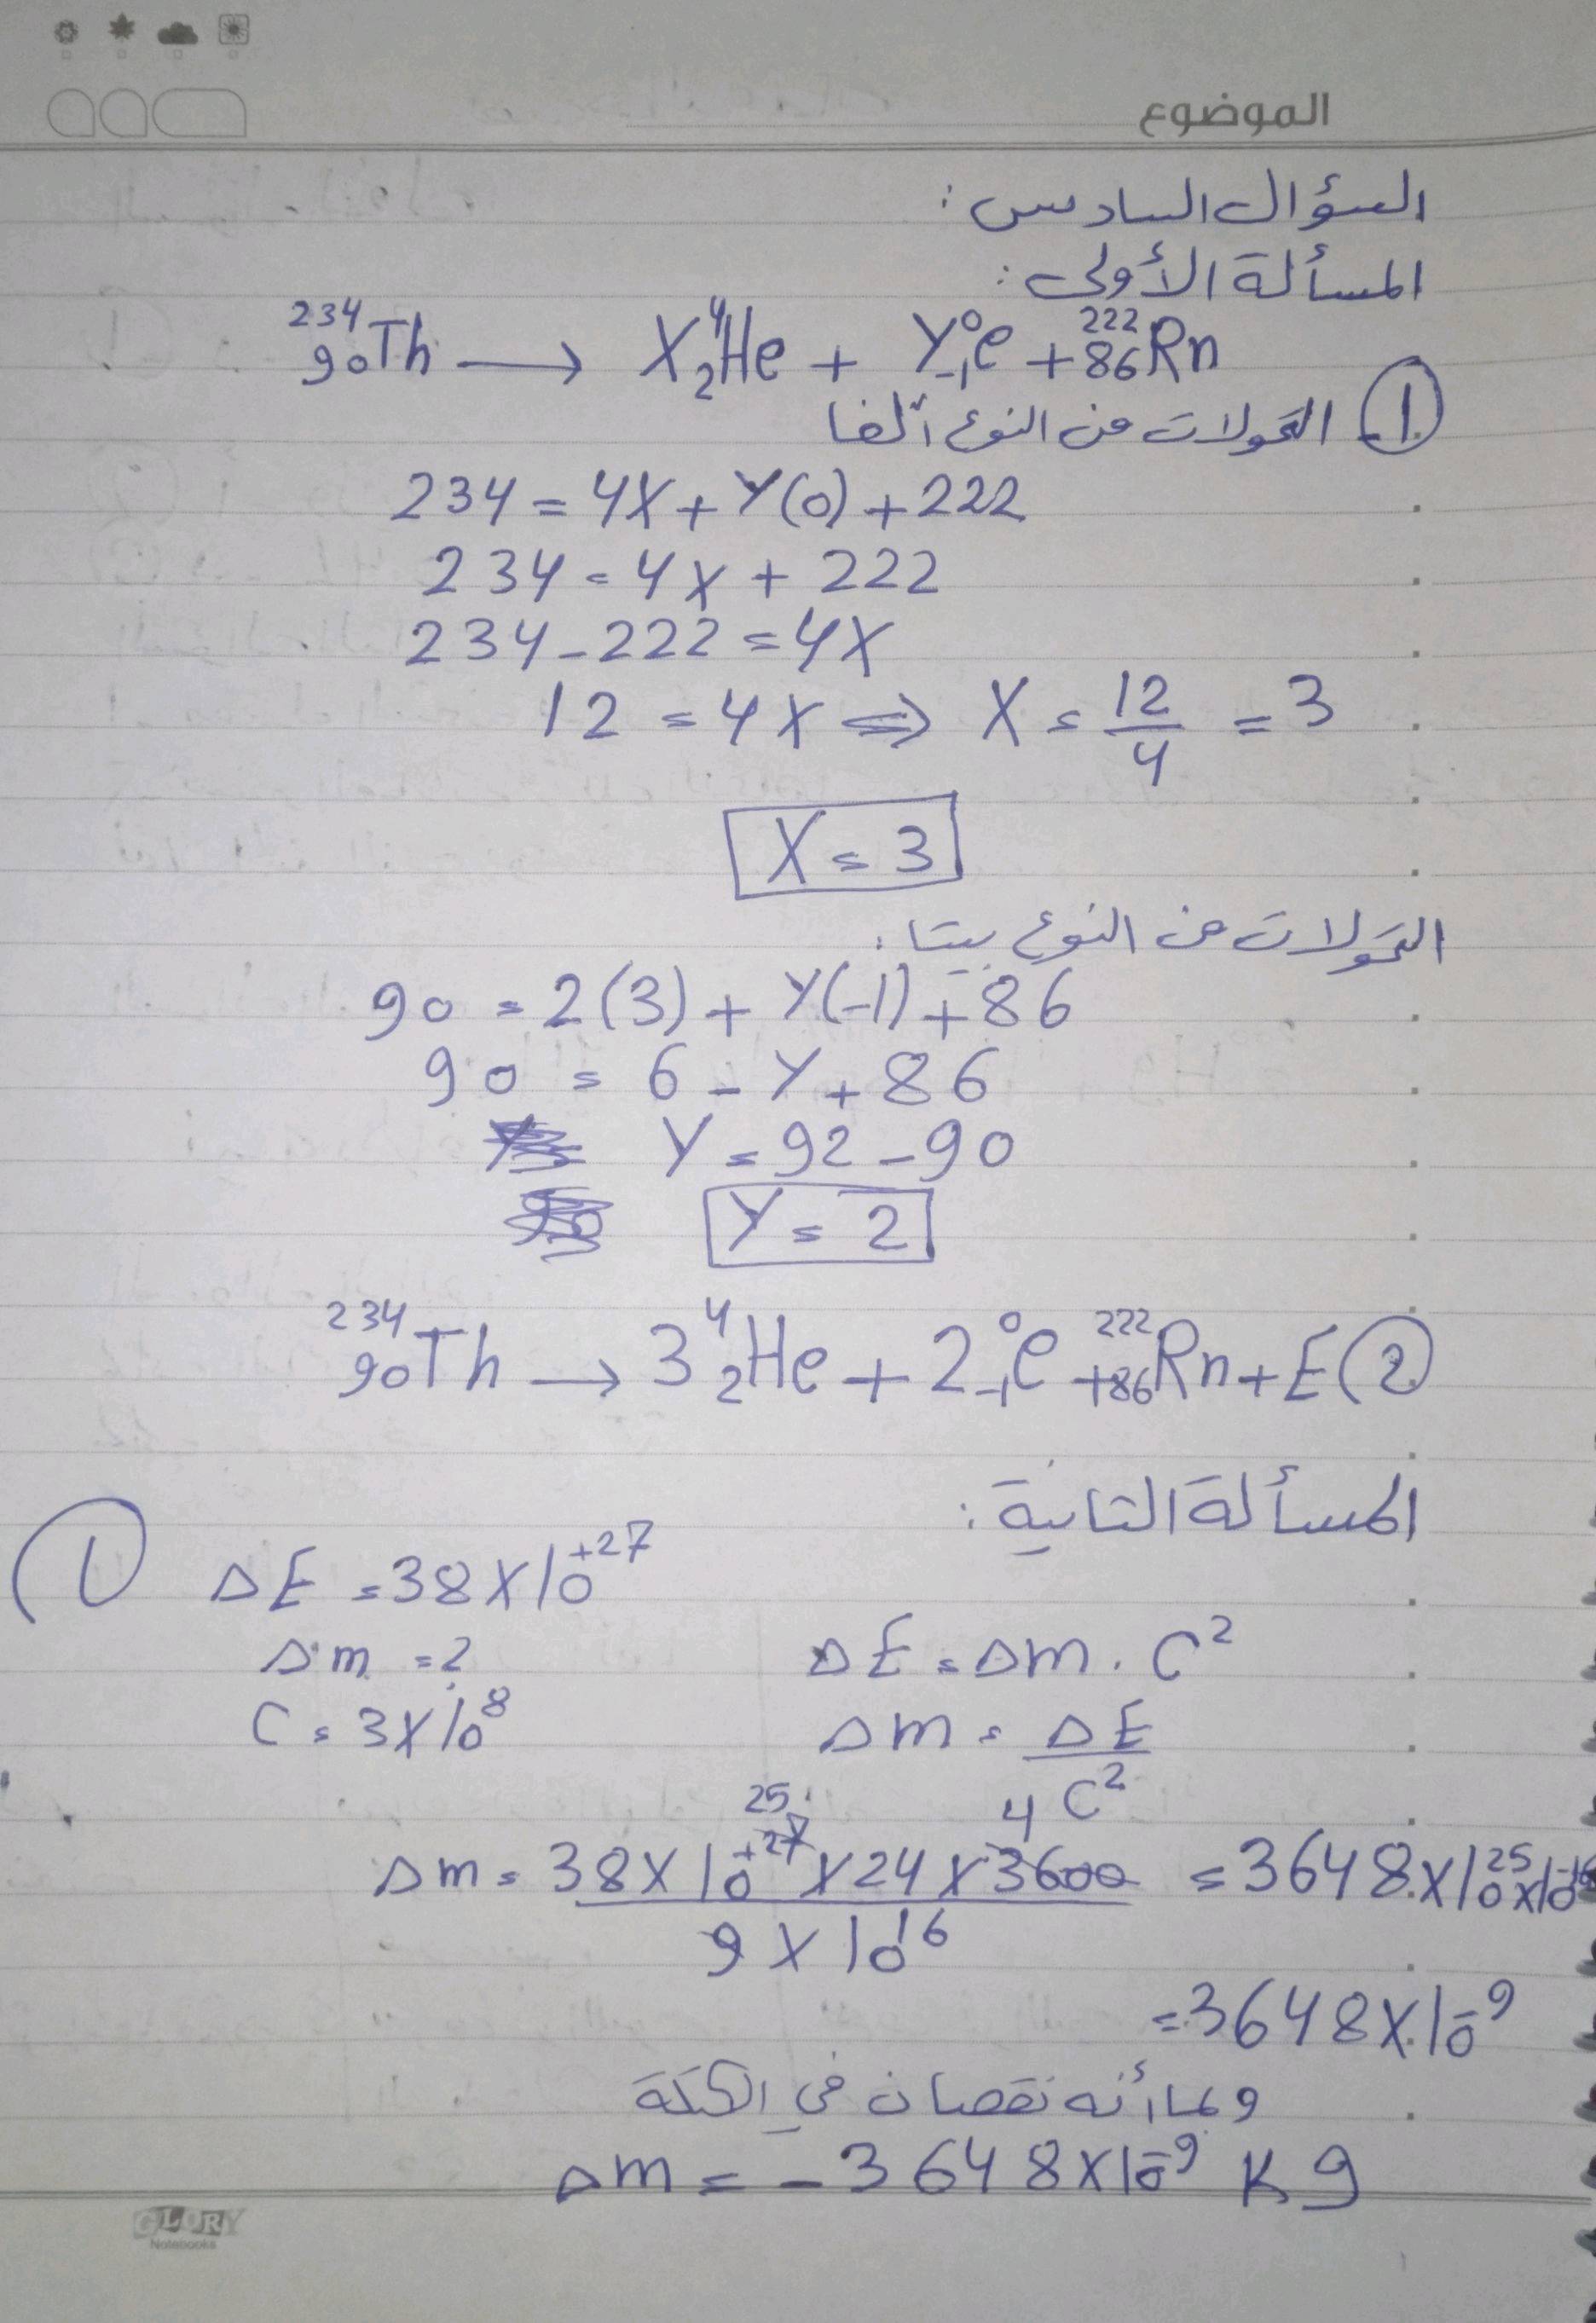 الموضوع
السؤال السادس:
المسألة الأولى:
²³⁴₉₀Th → X ⁴₂He + Y ⁰₋₁e + ²²²₈₆Rn
1 التحولات من النوع ألفا
234 = 4X + Y(0) + 222
234 = 4X + 222
234 - 222 = 4X
12 = 4X ⇒ X = 12/4 = 3
X = 3
التحولات من النوع بيتا:
90 = 2(3) + Y(-1) + 86
90 = 6 - Y + 86
Y = 92 - 90
Y = 2
²³⁴₉₀Th → 3 ⁴₂He + 2 ⁰₋₁e + ²²²₈₆Rn + E 2
المسألة الثانية:
1 ΔE = 38 × 10⁺²⁷
Δm = ?
ΔE = Δm . C²
C = 3 × 10⁸
Δm = ΔE / C²
25 4
Δm = 38 × 10⁺²⁷ × 24 × 3600 / 9 × 10¹⁶ = 3648 × 10²⁵ × 10⁻¹⁶
= 3648 × 10⁻⁹
وبما أنه نقصان في الكتلة
Δm = - 3648 × 10⁻⁹ Kg
GLORY
Notebooks